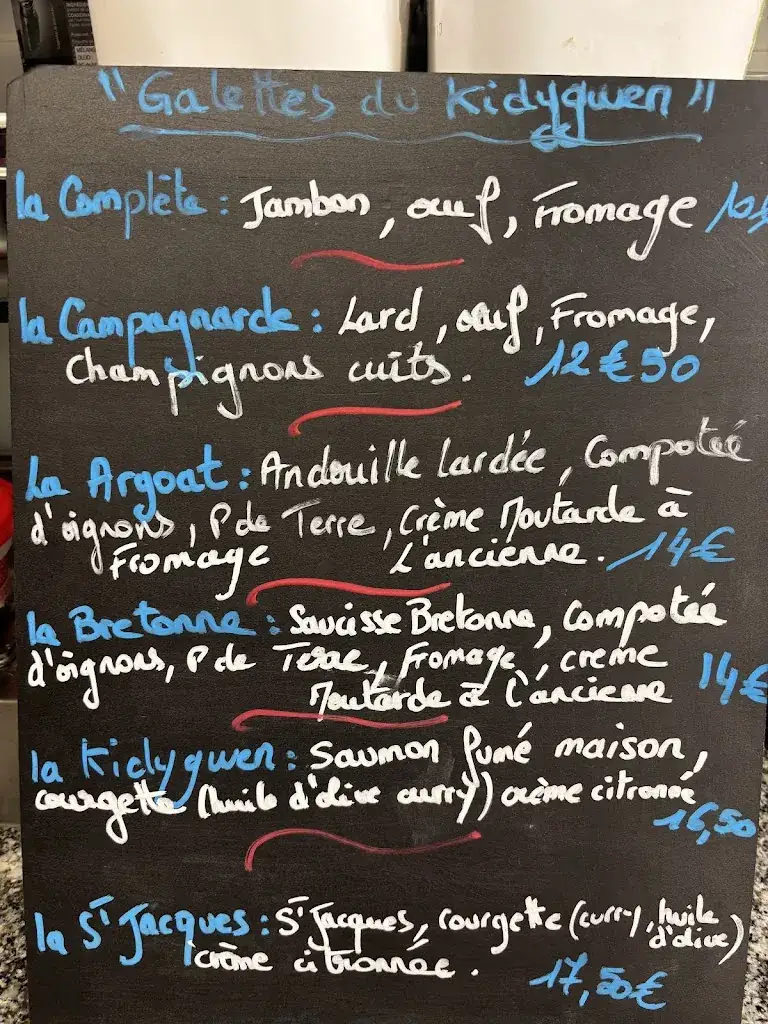 "Galettes du Kidygwen"
la Complète : Jambon, œuf, Fromage 10
la Campagnarde : Lard, œuf, Fromage,
Champignons cuits. 12€50
La Argoat : Andouille lardée, Compoteé
d'oignons, P de Terre, Crème Moutarde à
Fromage l'ancienne. 14€
la Bretonne : Saucisse Bretonne, Compotée
d'oignons, P de Terre, Fromage, crème
Moutarde à l'ancienne 14€
la Kidygwen : Saumon fumé maison,
courgette (huile d'olive curry) crème citronné
16,50
la St Jacques : St Jacques, courgette (curry, huile
d'olive)
crème citronnée.
17,50€